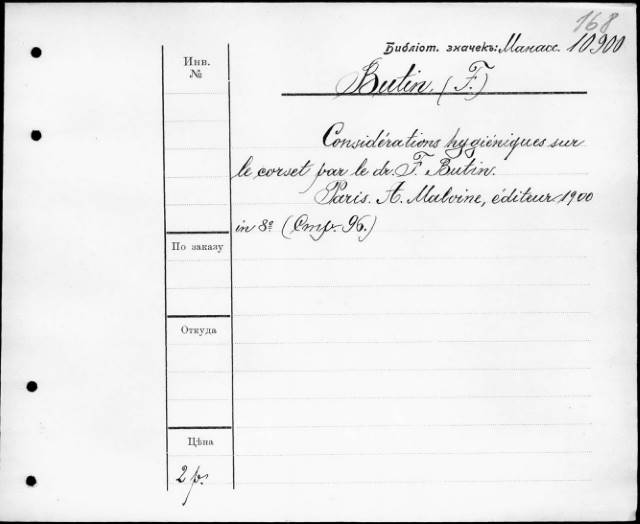 168
Библіот. значекъ: Манасс. 10900
Инв.
№
Butin. (F.)
Considérations hygiéniques sur
le corset par le dr. F. Butin.
Paris. A. Maloine, éditeur 1900
in 8º (Стр. 96.)
По заказу
Откуда
Цѣна
2 р.